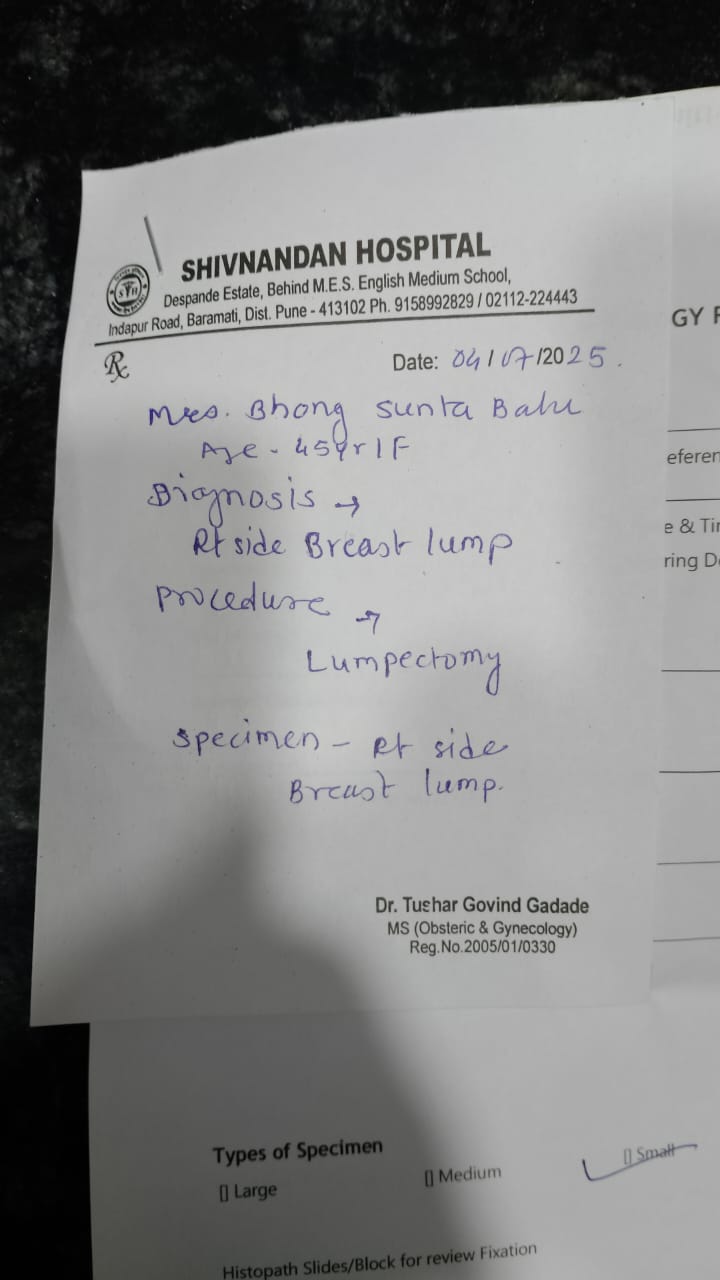 SHIVNANDAN HOSPITAL
Despande Estate, Behind M.E.S. English Medium School,
Indapur Road, Baramati, Dist. Pune - 413102 Ph. 9158992829 / 02112-224443
Rx
Date: 04/07/2025.
Mrs. Bhong Sunta Balu
Age - 45yr/F
Diagnosis →
Rt side Breast lump
Procedure →
Lumpectomy
Specimen - Rt side
Breast lump.
Dr. Tushar Govind Gadade
MS (Obsteric & Gynecology)
Reg.No.2005/01/0330
GY
eferen
e & Ti
ring D
Types of Specimen
[] Large
[] Medium
[] Small
Histopath Slides/Block for review Fixation